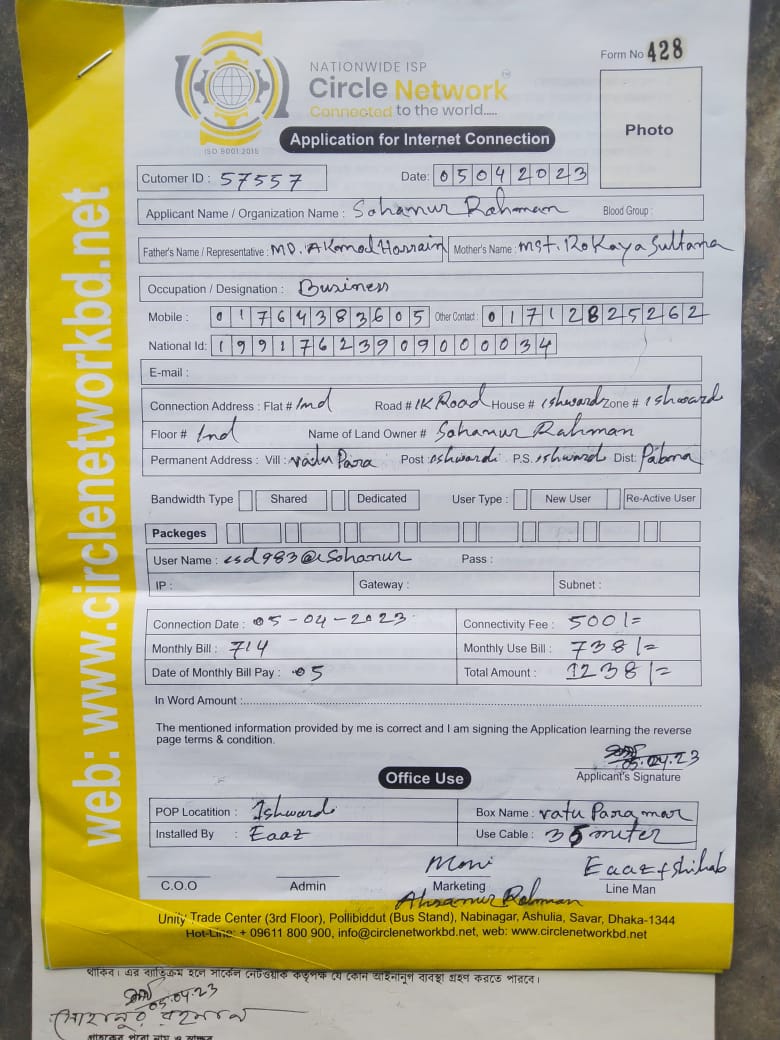 NATIONWIDE ISP
Circle Network
Connected to the world.....
ISO 9001:2015
Form No 428
Application for Internet Connection
Photo
Cutomer ID : 57557
Date: 05042023
Applicant Name / Organization Name : Sohanur Rahman Blood Group :
Father's Name / Representative : MD. AKamod Hossain Mother's Name : Mst. Rokaya Sultana
Occupation / Designation : Business
Mobile : 01764383605 Other Contact : 01712825262
National Id: 19917623909000034
E-mail :
Connection Address : Flat # 1nd Road # IK Road House # ishwardi Zone # ishwardi
Floor # 1nd Name of Land Owner # Sohanur Rahman
Permanent Address : Vill : vatu Para Post : ishwardi P.S. ishwardi Dist: Pabna
Bandwidth Type Shared Dedicated User Type : New User Re-Active User
Packeges
User Name : isd983@Sohanur Pass :
IP : Gateway : Subnet :
Connection Date : 05-04-2023 Connectivity Fee : 500/=
Monthly Bill : 714 Monthly Use Bill : 738/=
Date of Monthly Bill Pay : 05 Total Amount : 1238/=
In Word Amount :
The mentioned information provided by me is correct and I am signing the Application learning the reverse
page terms & condition.
05.04.23
Applicant's Signature
Office Use
POP Locatition : Ishwardi Box Name : vatu Para mor
Installed By : Eaaz Use Cable : 35 meter
Moni Eaaz + Shihab
C.O.O Admin Marketing Line Man
Ahsanur Rahman
Unity Trade Center (3rd Floor), Pollibiddut (Bus Stand), Nabinagar, Ashulia, Savar, Dhaka-1344
Hot-Line: + 09611 800 900, info@circlenetworkbd.net, web: www.circlenetworkbd.net
web: www.circlenetworkbd.net
থাকিব। এর ব্যতিক্রম হলে সার্কেল নেটওয়ার্ক কতৃপক্ষ যে কোন আইনানুগ ব্যবস্থা গ্রহণ করতে পারবে।
05.04.23
সোহানুর রহমান